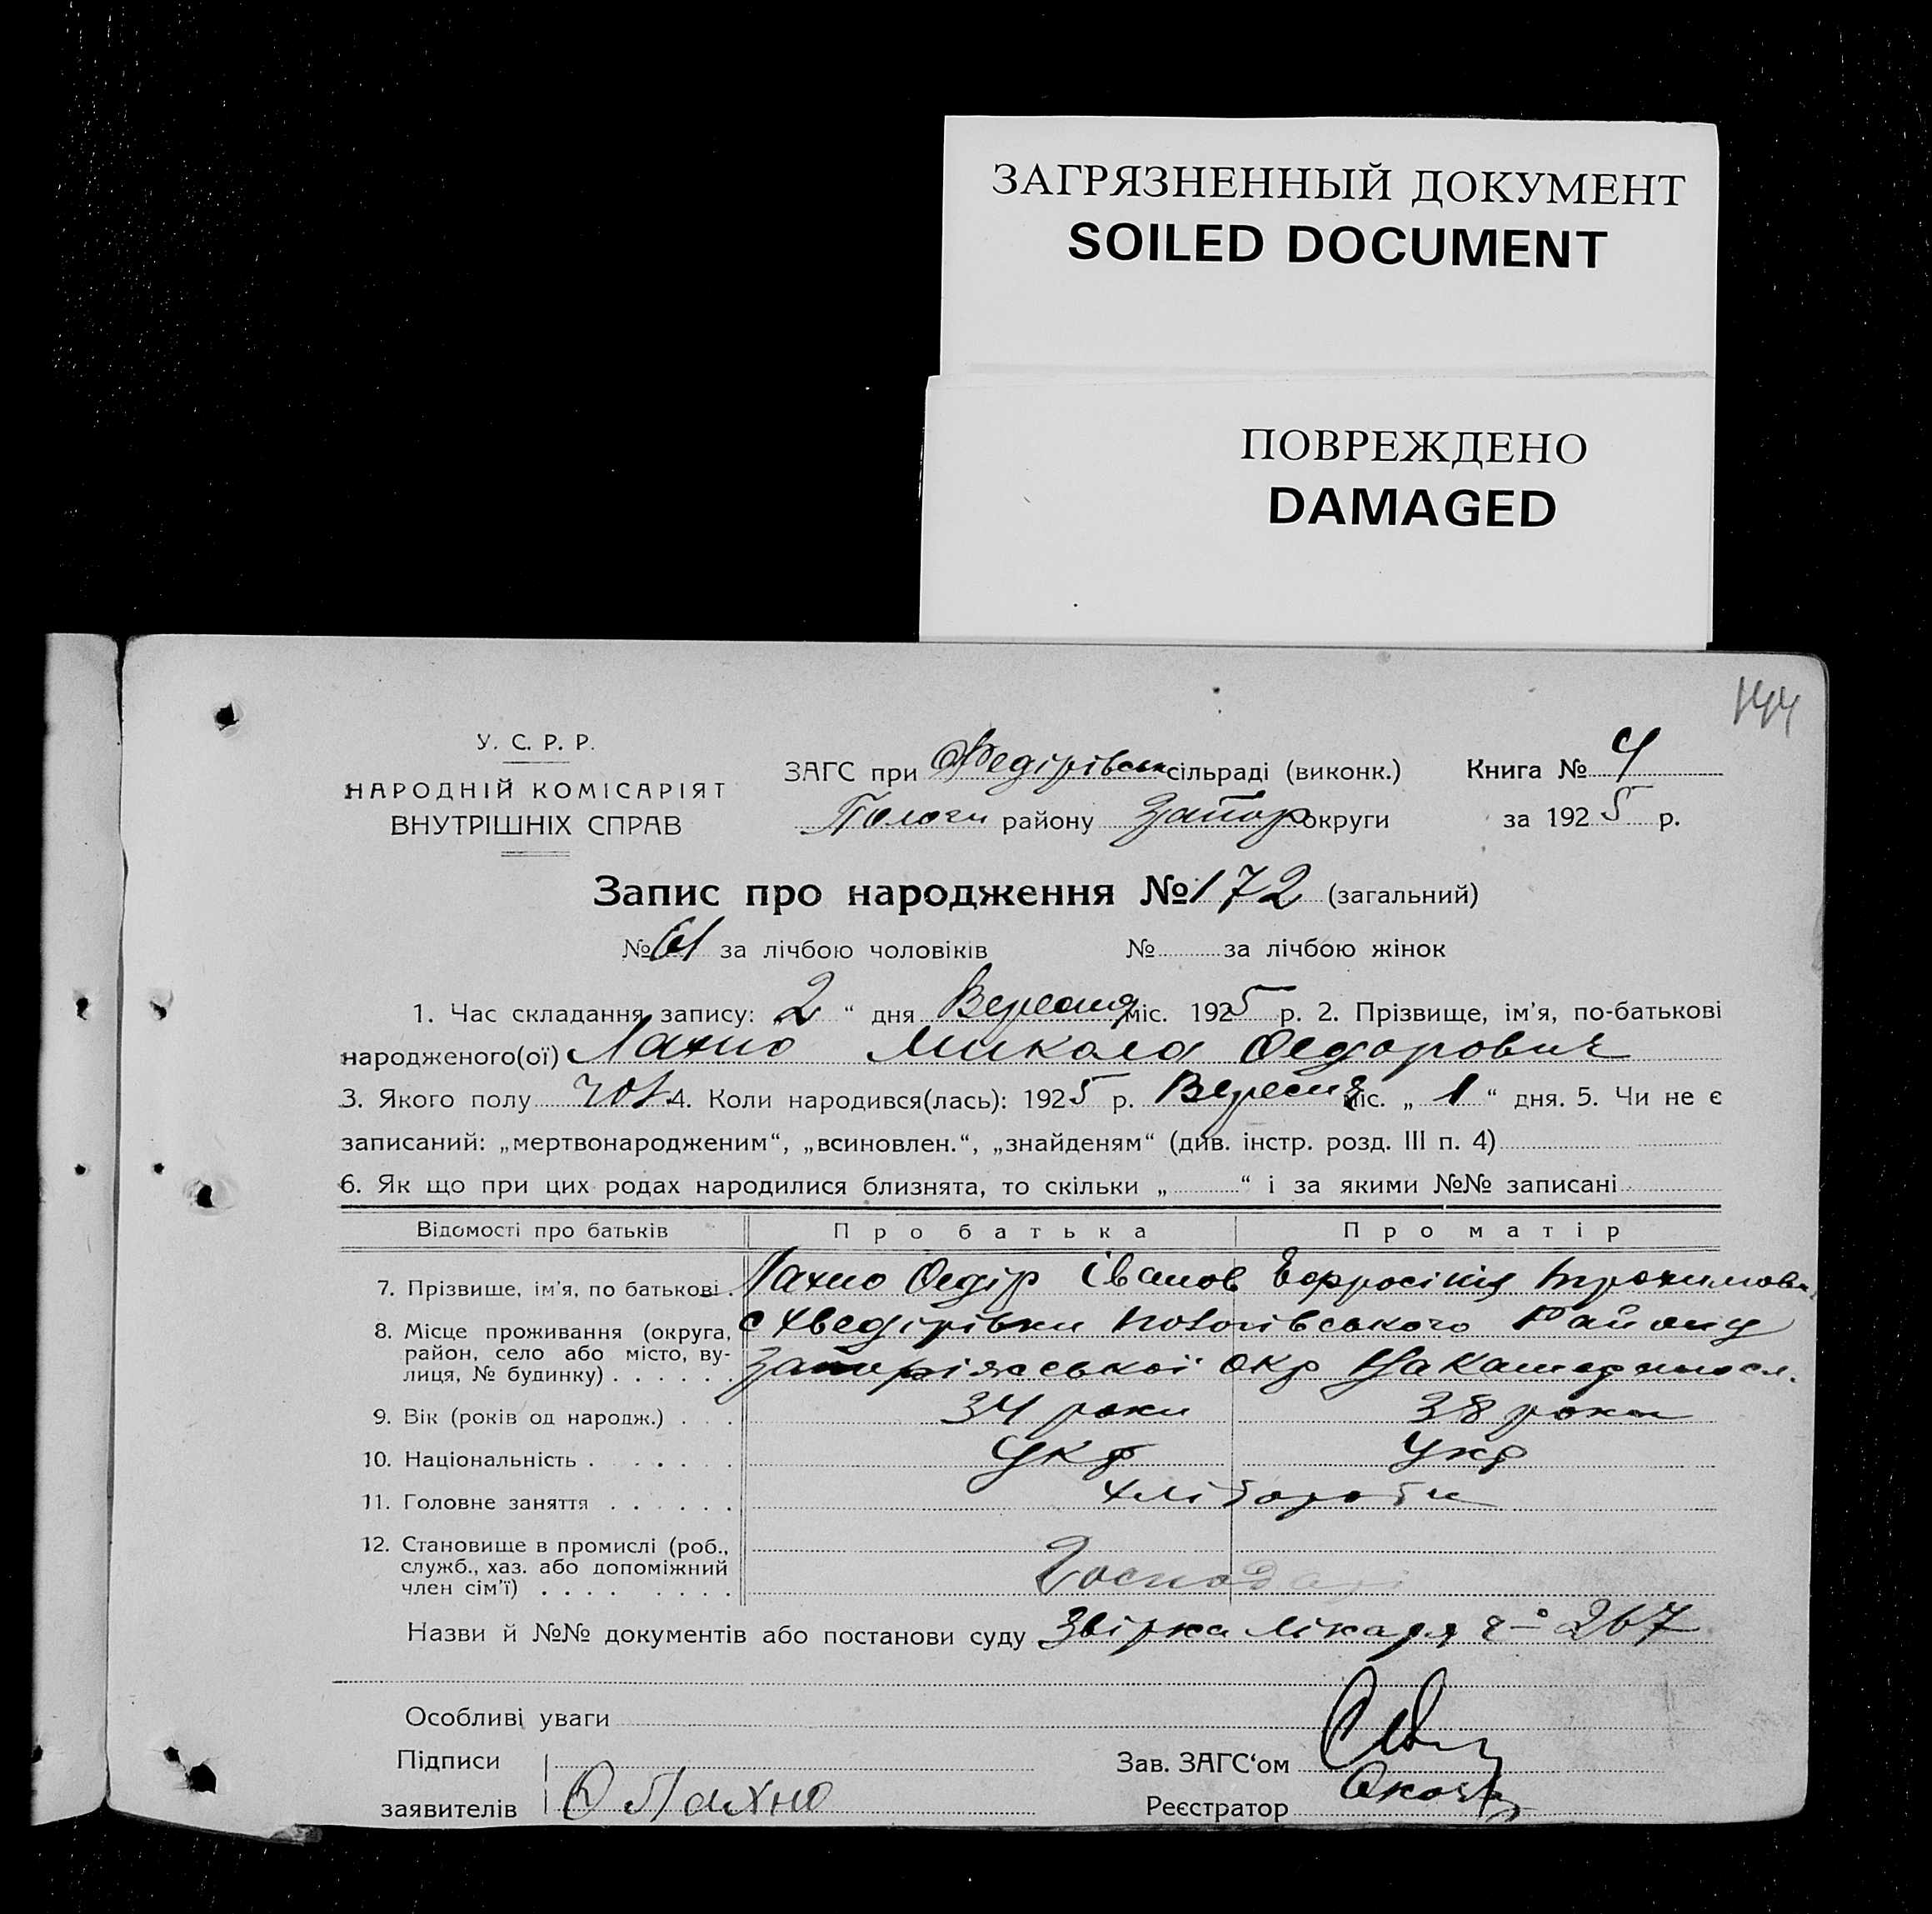 ЗАГРЯЗНЕННЫЙ ДОКУМЕНТ
SOILED DOCUMENT
ПОВРЕЖДЕНО
DAMAGED
144
У. С. Р. Р.
НАРОДНІЙ КОМІСАРІЯТ
ВНУТРІШНІХ СПРАВ
ЗАГС при Хведірівськ сільраді (виконк.) Книга № 4
Пологи району Запор округи за 1925 р.
Запис про народження № 172 (загальний)
№ 61 за лічбою чоловіків № за лічбою жінок
1. Час складання запису: „2“ дня Вересня міс. 1925 р. 2. Прізвище, ім'я, по-батькові
народженого(ої) Лахно Микола Федорович
3. Якого полу чол 4. Коли народився(лась): 1925 р. Вересня міс. „1“ дня. 5. Чи не є
записаний: „мертвонародженим“, „всиновлен.“, „знайденям“ (див. інстр. розд. III п. 4)
6. Як що при цих родах народилися близнята, то скільки „ “ і за якими №№ записані
Відомості про батьків Про батька Про матір
7. Прізвище, ім'я, по батькові Лахно Федір Іванов Ефросінія Трохимовн
8. Місце проживання (округа, район, село або місто, вулиця, № будинку) с Хведірівки Пологівського Району
Запоріжської окр
9. Вік (років од народж.) 34 роки 38 роки
10. Національність Укр Укр
11. Головне заняття Хлібороби
12. Становище в промислі (роб., служб., хаз. або допоміжний член сім'ї) Господарі
Назви й №№ документів або постанови суду Звірка лікаря ч 267
Особливі уваги
Підписи
заявителів Ф Лахно
Зав. ЗАГС'ом
Реєстратор